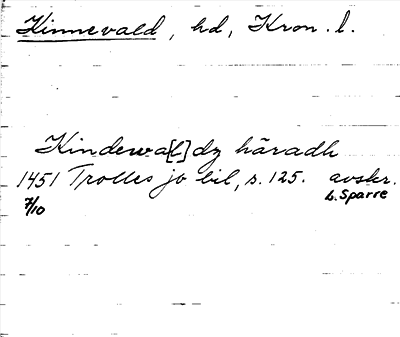 Kinnevald, hd, Kron. l.
Kindewa[l]dz häradh
1451 Trolles jo bil, s. 125. avskr.
7/10 L. Sparre